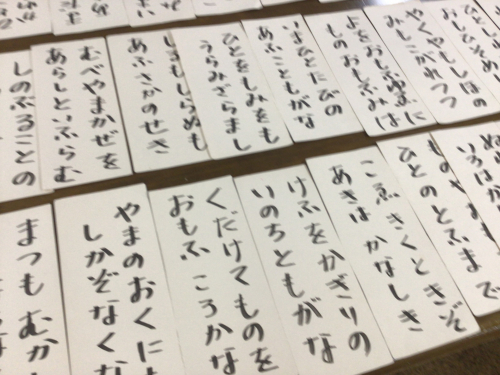 やくやもしほの
みもこがれつつ
よをおもふゆゑに
ものおもふみは
いまひとたびの
あふこともがな
ひとをもみをも
うらみざらまし
しるもしらぬも
あふさかのせき
むべやまかぜを
あらしといふらむ
しのぶることの
いろはか
ひとのとふまで
こゑきくときぞ
あきはかなしき
けふをかぎりの
いのちともがな
くだけてものを
おもふころかな
やまのおくに
しかぞなくな
まつもむかし